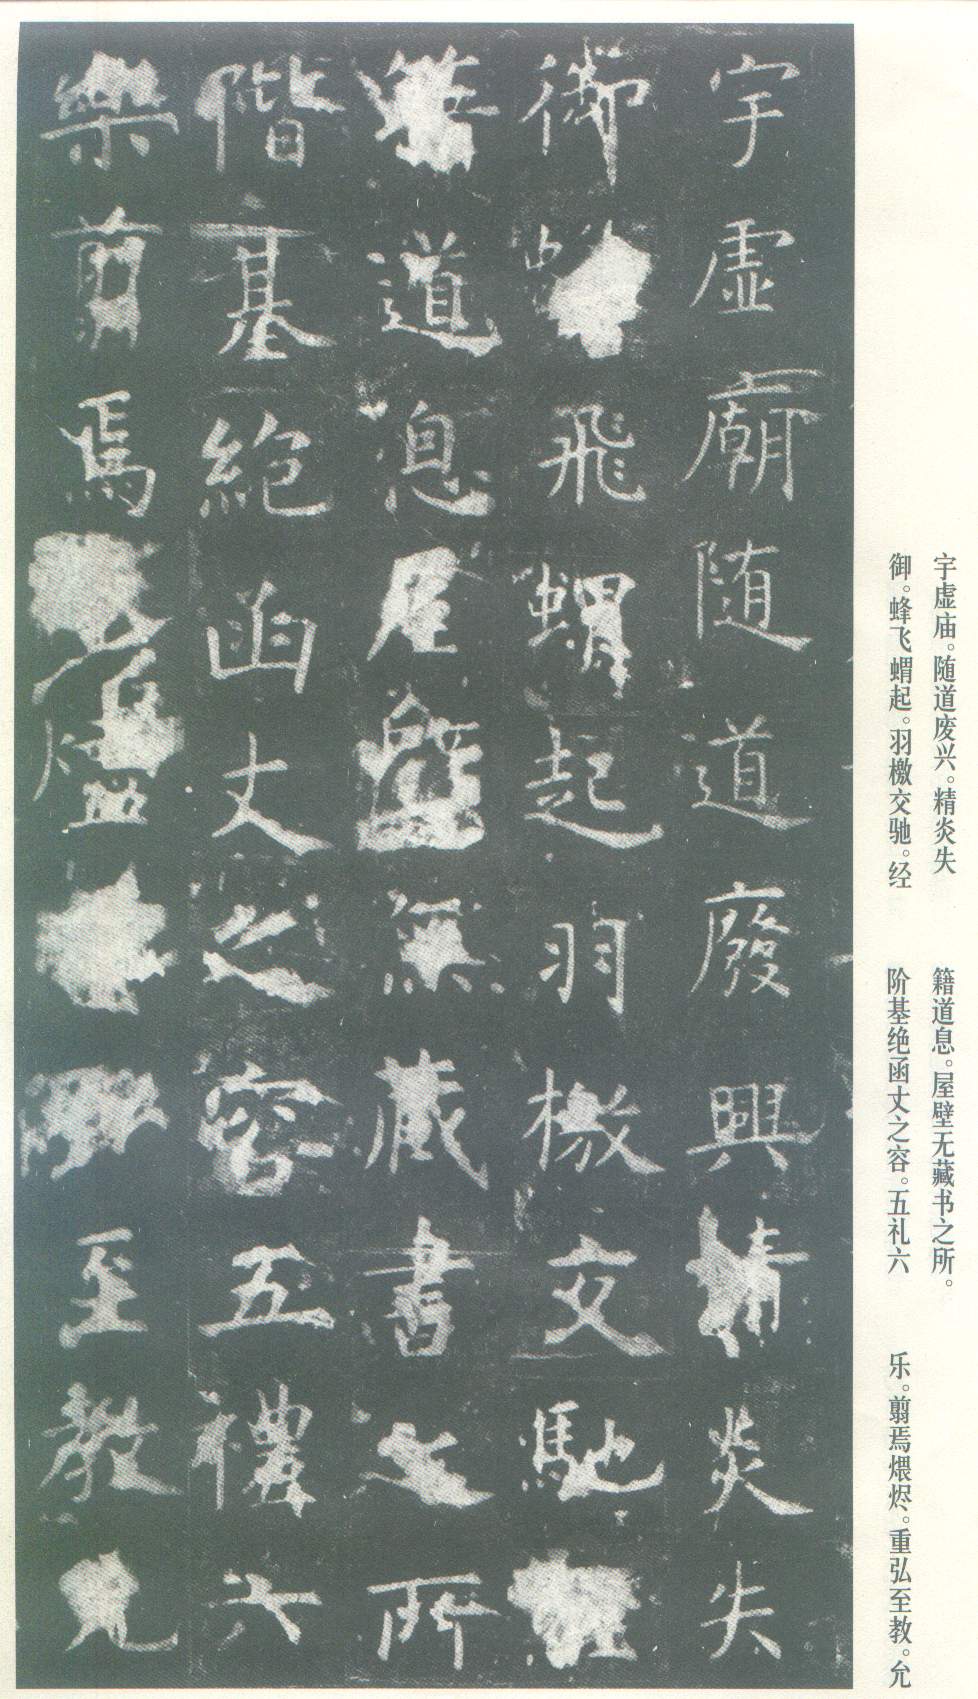 宇虚庙。随道废兴。精炎失
御。蜂飞蝟起。羽檄交驰。经
籍道息。屋壁无藏书之所。
阶基绝函丈之容。五礼六
乐。翦焉煨烬。重弘至教。允
宇虛廟随道廢興精炎失
御蜂飛蝟起羽檄交馳經
籍道息屋壁無藏書之所
階基絕函丈之容五禮六
樂翦焉燼至教允